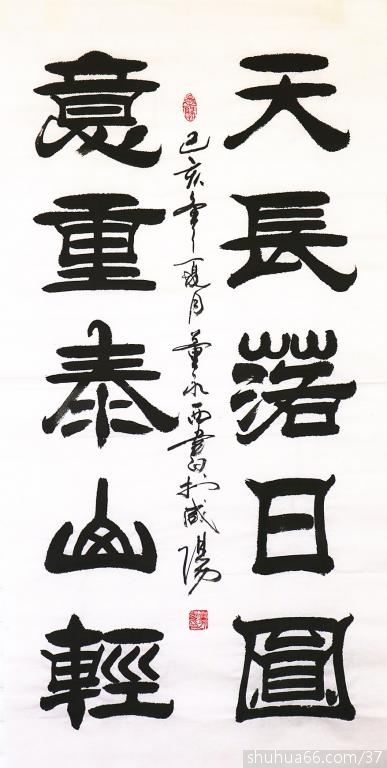 天長落日圓
意重泰山輕
己亥年夏月董永西書於咸陽
shuhua66.com/37